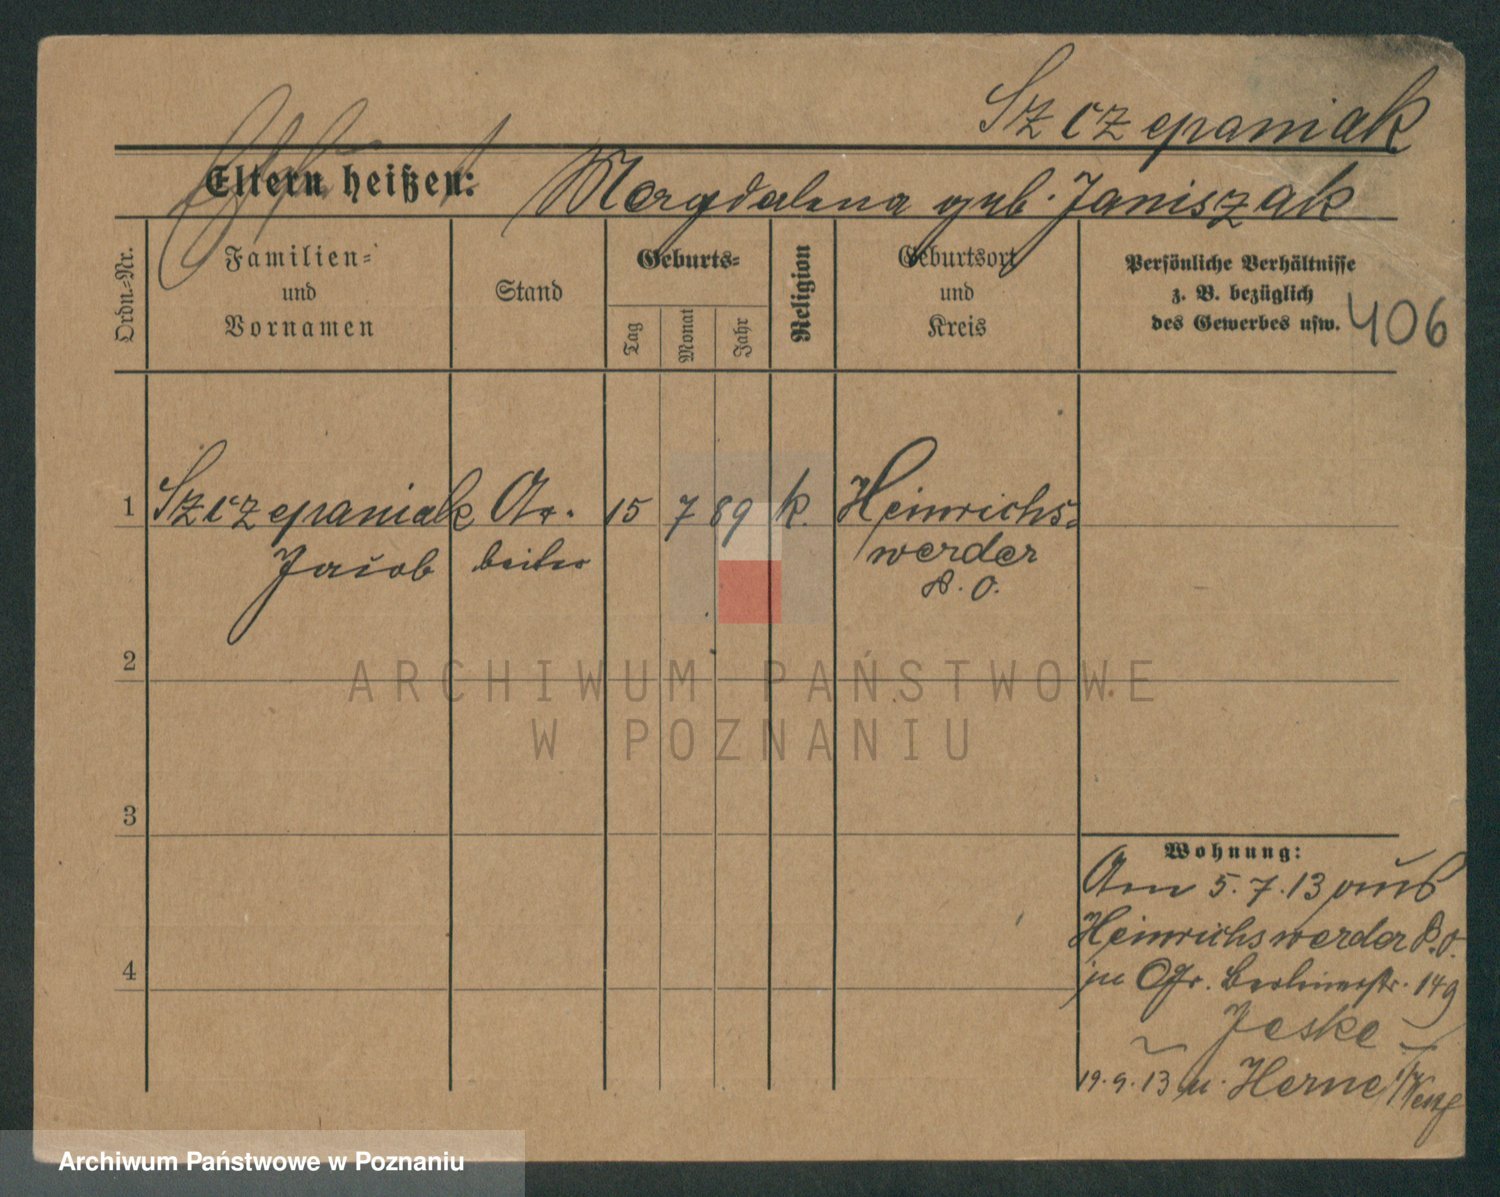 Szczepaniak
Eltern heißen: Magdalena geb. Janiszak
Ordn.-Nr.
Familien-
und
Vornamen
Stand
Geburts-
Tag
Monat
Jahr
Religion
Geburtsort
und
Kreis
Persönliche Verhältnisse
z. B. bezüglich
des Gewerbes usw.
406
1 Szczepaniak Ar- 15 7 89 k. Heinrichs-
Jacob beiter werder
P. O.
2
3
4
Wohnung:
Am 5.7.13 aus
Heinrichswerder P.O.
zu Berlinerstr. 149
Jeske
19.9.13 n. Herne
ARCHIWUM PAŃSTWOWE
W POZNANIU
Archiwum Państwowe w Poznaniu